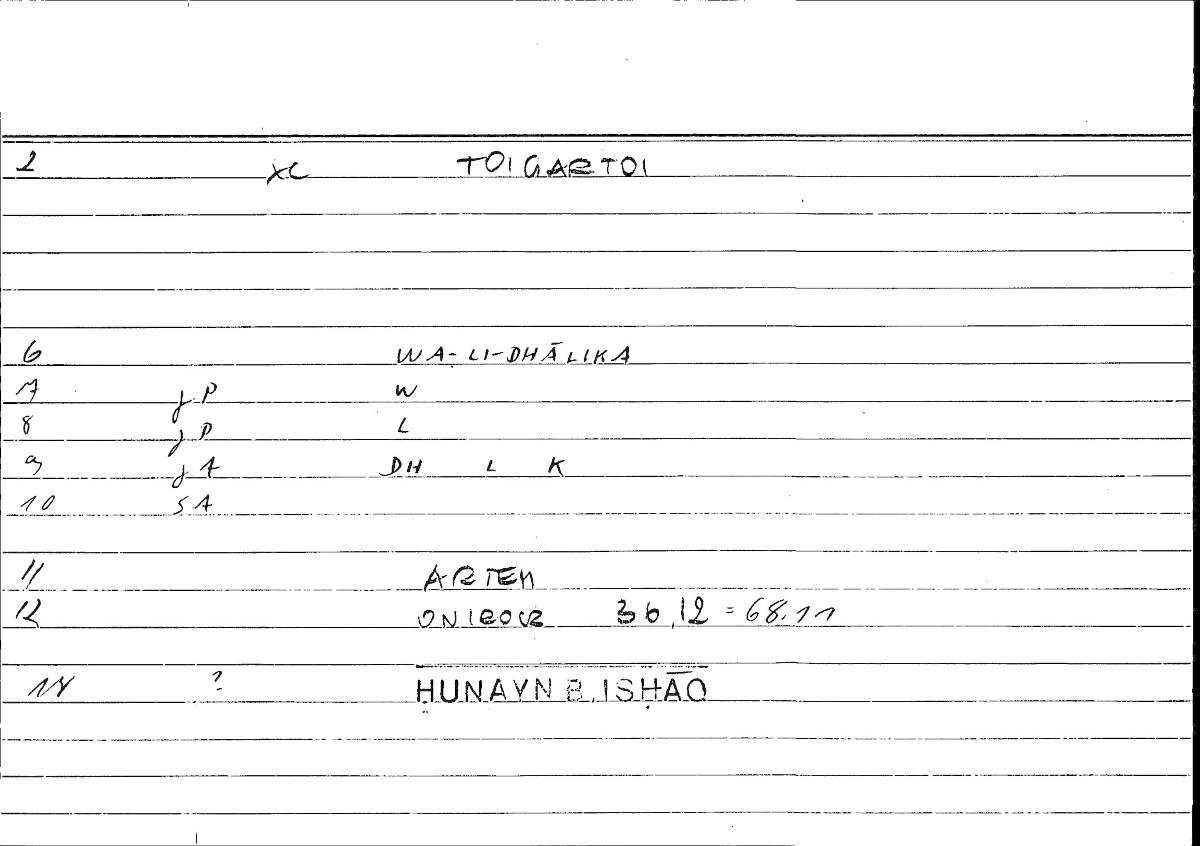 2 XC TOIGARTOI
6 WA-LI-DHĀLIKA
7 jP W
8 jP L
9 jA DH L K
10 SA
11 ARTEM
12 ONIROCR 36,12 = 68.11
14 ? ḤUNAYN B. ISḤĀQ